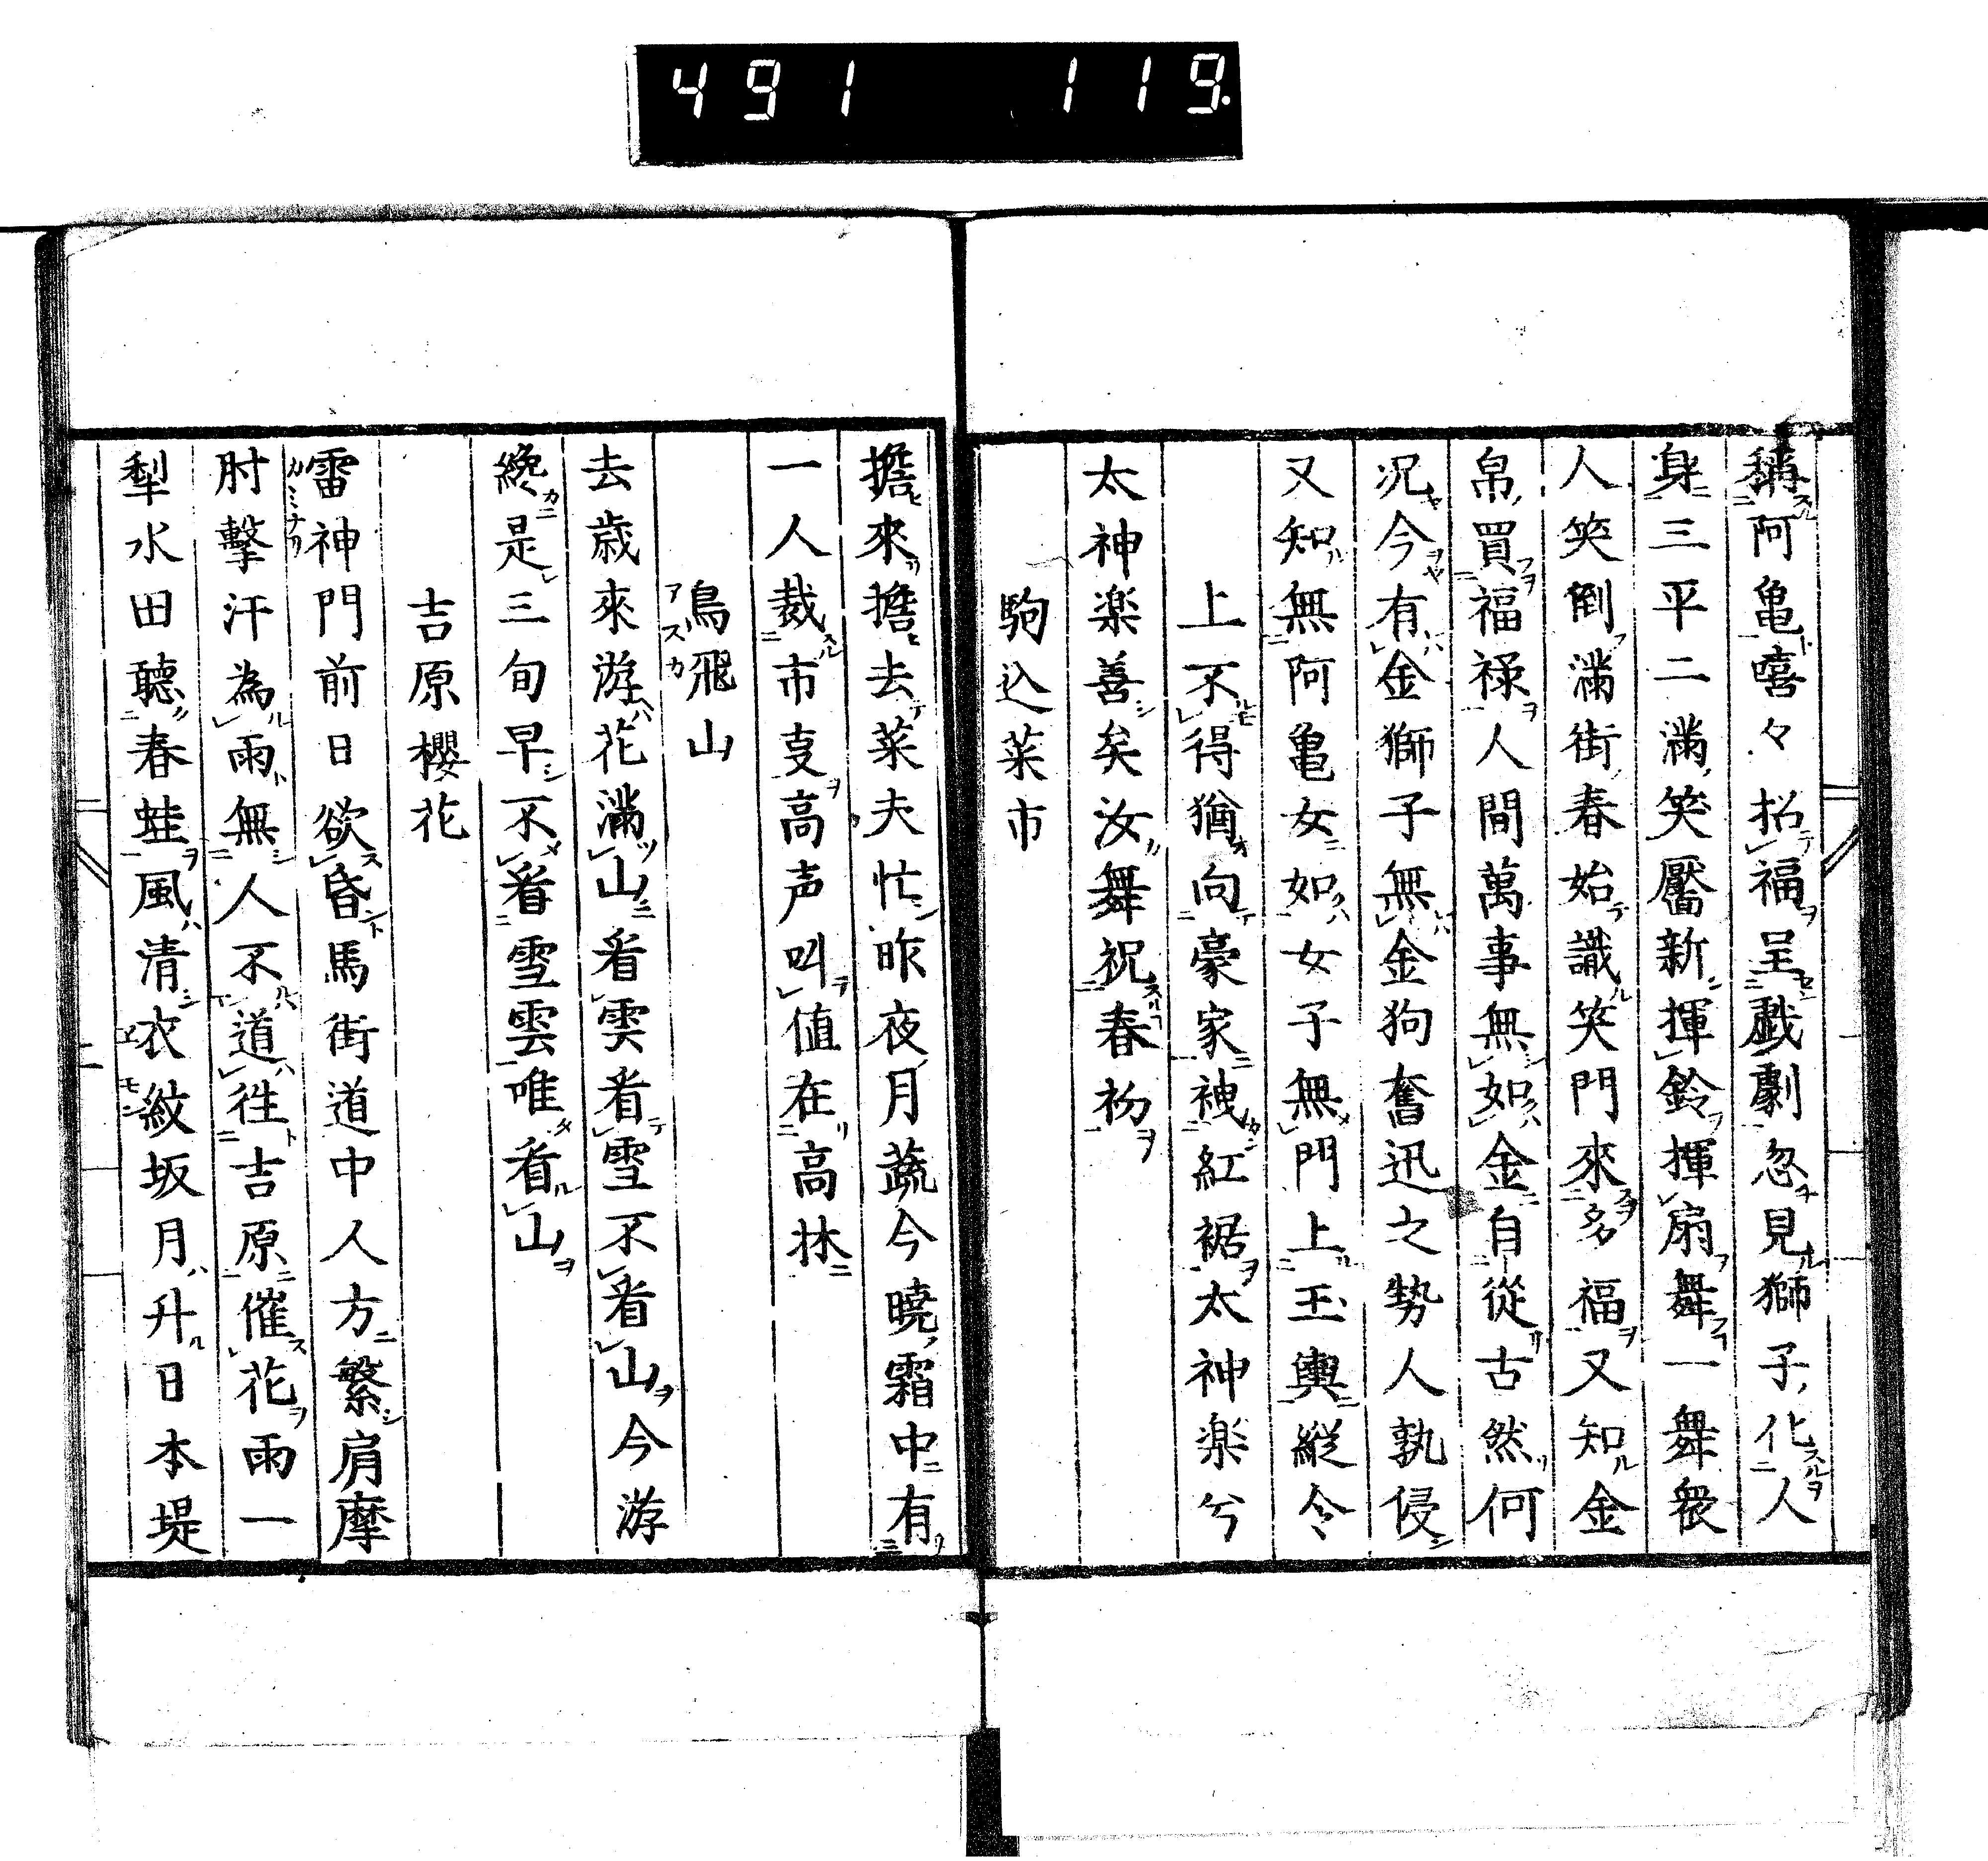 491 119.
稱阿亀嘻々招福呈戱劇忽見獅子化人
身三平二滿笑靨新揮鈴揮扇舞一舞衆
人笑倒滿街春始識笑門來多福又知金
帛買福禄人間萬事無如金自從古然何
况今有金獅子無金狗奮迅之勢人孰侵
又知無阿亀女如女子無門上玉輿縱令
上不得猶向豪家裡紅裾太神楽兮
太神楽善矣汝舞祝春初
駒込菜市
擔來擔去菜夫忙昨夜月蔬今曉霜中有
一人裁市支高声叫値在高牀
鳥飛山
去歳來游花滿山看雲看雪不看山今游
纔是三旬早不看雪雲唯看山
吉原櫻花
雷神門前日欲昏馬街道中人方繁肩摩
肘擊汗為雨無人不道徃吉原催花雨一
犁水田聽春蛙風清衣紋坂月升日本堤